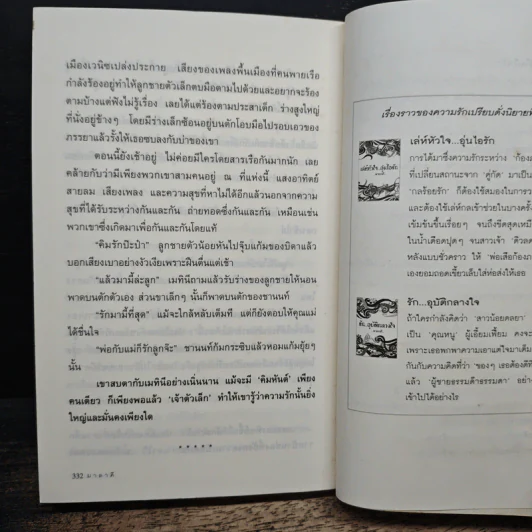 เมืองเวนิซเปล่งประกาย เสียงของเพลงพื้นเมืองที่คนพายเรือ
กำลังร้องอยู่ทำให้ลูกชายตัวเล็กตบมือตามไปด้วยและอยากจะร้อง
ตามบ้างแต่ฟังไม่รู้เรื่อง เลยได้แต่ร้องตามประสาเด็ก ร่างสูงใหญ่
ที่นั่งอยู่ข้างๆ โดยมีร่างเล็กซ้อนอยู่บนตักโอบมือไปรอบเอวของ
ภรรยาแล้วรั้งให้เธอซบลงกับบ่าของเขา
ตอนนี้ยังเช้าอยู่ ไม่ค่อยมีใครโดยสารเรือกันมากนัก เลย
คล้ายกับว่ามีเพียงพวกเขาสามคนอยู่ ณ ที่แห่งนี้ แสงอาทิตย์
สายลม เสียงเพลง และความสุขที่หาไม่ได้อีกแล้วนอกจากความ
สุขที่ได้รับระหว่างกันและกัน ถ่ายทอดซึ่งกันและกัน เหมือนเช่น
พวกเขาซึ่งเกิดมาเพื่อกันและกันโดยแท้
“คิมรักป๊ะป๋า” ลูกชายตัวน้อยหันไปจุ๊บแก้มของบิดาแล้ว
บอกเสียงเบาอย่างงัวเงียเพราะฝืนตื่นแต่เช้า
“แล้วม่ามี้ล่ะลูก” เมทินีถามแล้วรับร่างของลูกชายให้นอน
พาดบนตักตัวเอง ส่วนขาเล็กๆ นั้นก็พาดบนตักของชานนท์
“รักมามี้ที่สุด” แม้จะใกล้หลับเต็มที แต่ก็ยังตอบให้คุณแม่
ได้ชื่นใจ
“พ่อกับแม่ก็รักลูกจ้ะ” ชานนท์ก้มกระซิบแล้วหอมแก้มยุ้ยๆ
นั้น
เขาสบตากับเมทินีอย่างเนิ่นนาน แม้จะมี ‘คิมหันต์’ เพียง
คนเดียว ก็เพียงพอแล้ว ‘เจ้าตัวเล็ก’ ทำให้เขารู้ว่าความรักนั้นยิ่ง
ใหญ่และมั่นคงเพียงใด
* * * * *
332 มาลาวดี
เรื่องราวของความรักเปรียบดั่งนิยาย
เล่ห์หัวใจ...อุ่นไอรัก
การได้มาซึ่งความรักระหว่าง
ที่เปลี่ยนสถานะจาก ‘คู่กัด’ มาเป็น
‘กลร้อยรัก’ ก็ต้องใช้สมองในการวาง
และต้องใช้เล่ห์กลเข้าช่วยในบางครั้ง
เข้มข้นขึ้นเรื่อยๆ จนถึงขีดสุดเหมือน
ในน้ำเดือดปุดๆ จนสาวเจ้า
หลังแบบชั่วคราว ให้
เองยอมถอดเขี้ยวเล็บใส่ห่อส่งให้เธอ
รัก...อุบัติกลางใจ
ถ้าใครกำลังคิดว่า ‘สาวน้อยคลยา’
เป็น ‘คุณหนู’ ผู้เอื้อมเฟื้อม คงจะ
เพราะเธอพกพาความเอาแต่ใจมาเต็ม
กันกับความคิดที่ว่า ‘ของๆ เธอต้องดีที่
แล้ว ‘ผู้ชายธรรมด๊าธรรมดา’ อย่าง
เข้าไปได้อย่างไร